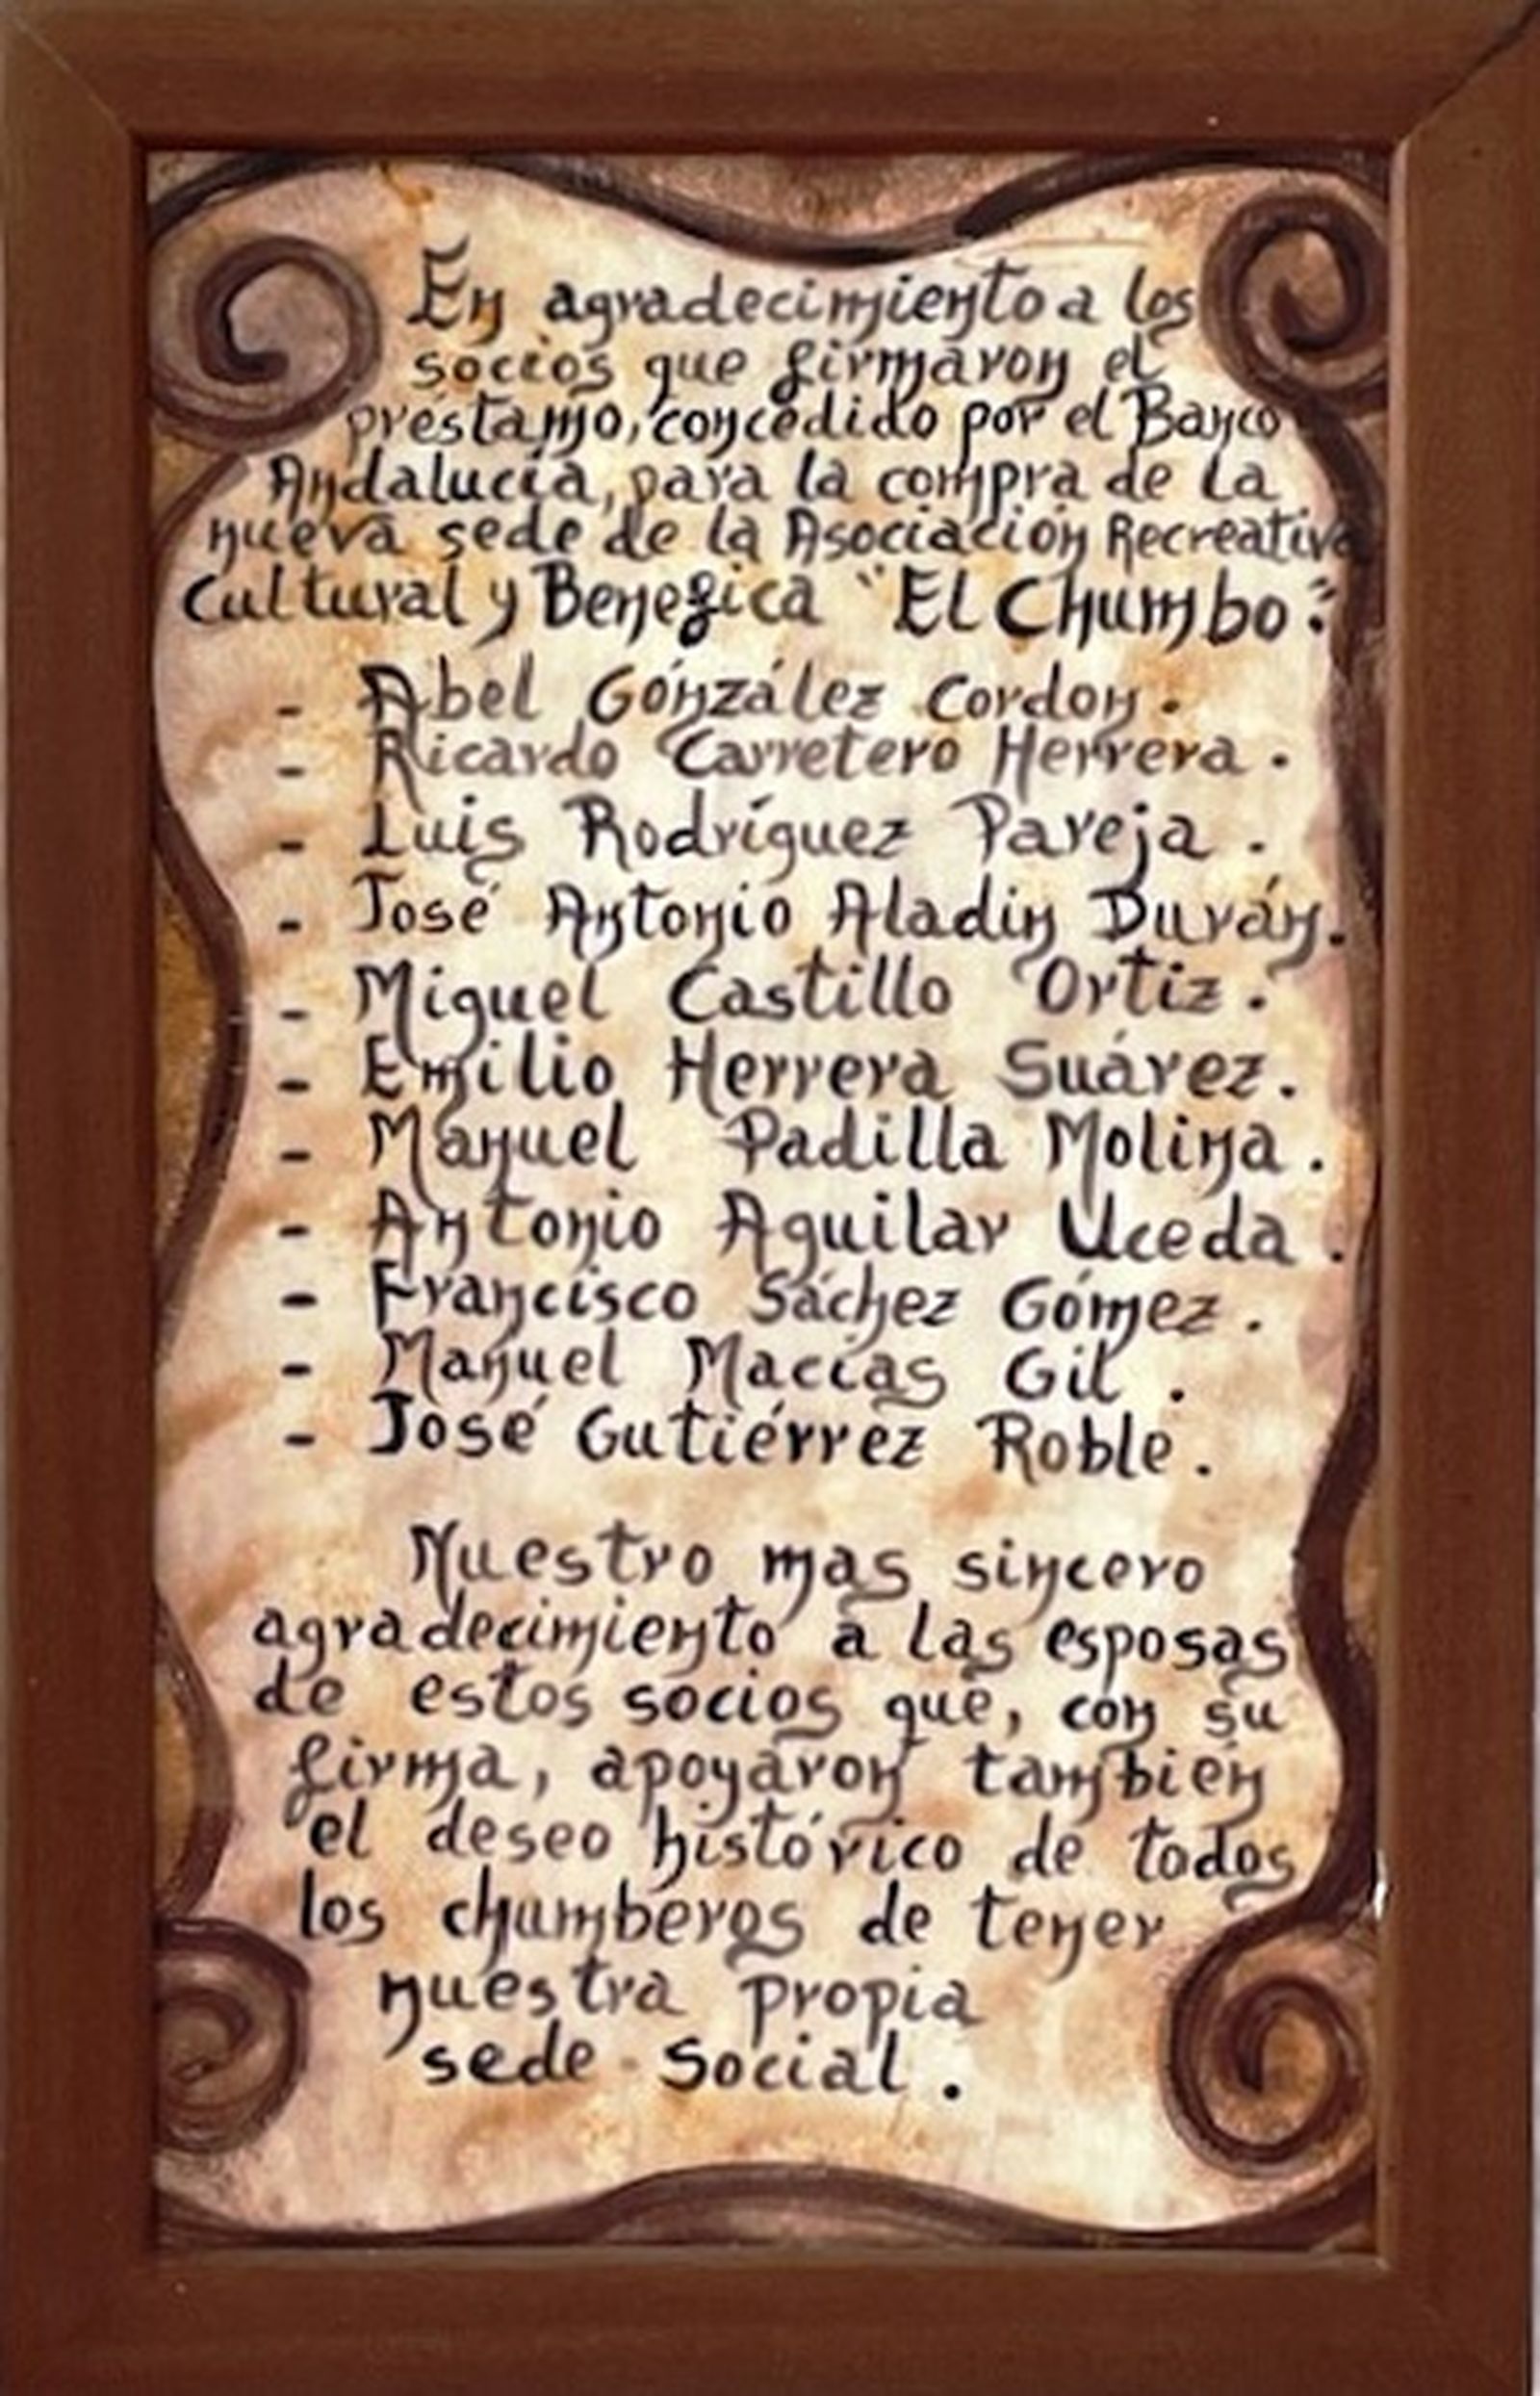 En agradecimiento a los
socios que firmaron el
préstamo, concedido por el Banco
Andalucía, para la compra de la
nueva sede de la Asociación Recreativa
Cultural y Benefica "El Chumbo":
- Abel Gónzález Cordon.
- Ricardo Carretero Herrera.
- Luis Rodríguez Pareja.
- José Antonio Aladin Durán.
- Miguel Castillo Ortiz.
- Emilio Herrera Suárez.
- Manuel Padilla Molina.
- Antonio Aguilar Uceda.
- Francisco Sáchez Gómez.
- Manuel Macías Gil.
- José Gutiérrez Roble.
Nuestro mas sincero
agradecimiento a las esposas
de estos socios que, con su
firma, apoyaron también
el deseo histórico de todos
los chumberos de tener
nuestra propia
sede social.